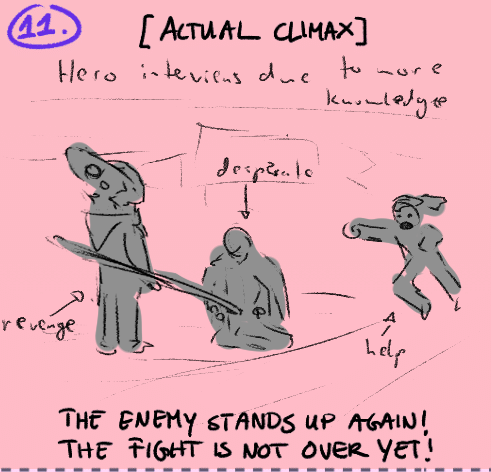 11.
[ACTUAL CLIMAX]
Hero interviens due to more
knowledge
desperate
revenge
help
THE ENEMY STANDS UP AGAIN!
THE FIGHT IS NOT OVER YET!